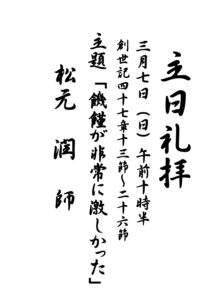 主日礼拝
三月七日（日）午前十時半
創世記四十七章十三節～二十六節
主題「饑饉が非常に激しかった」
松元 潤 師